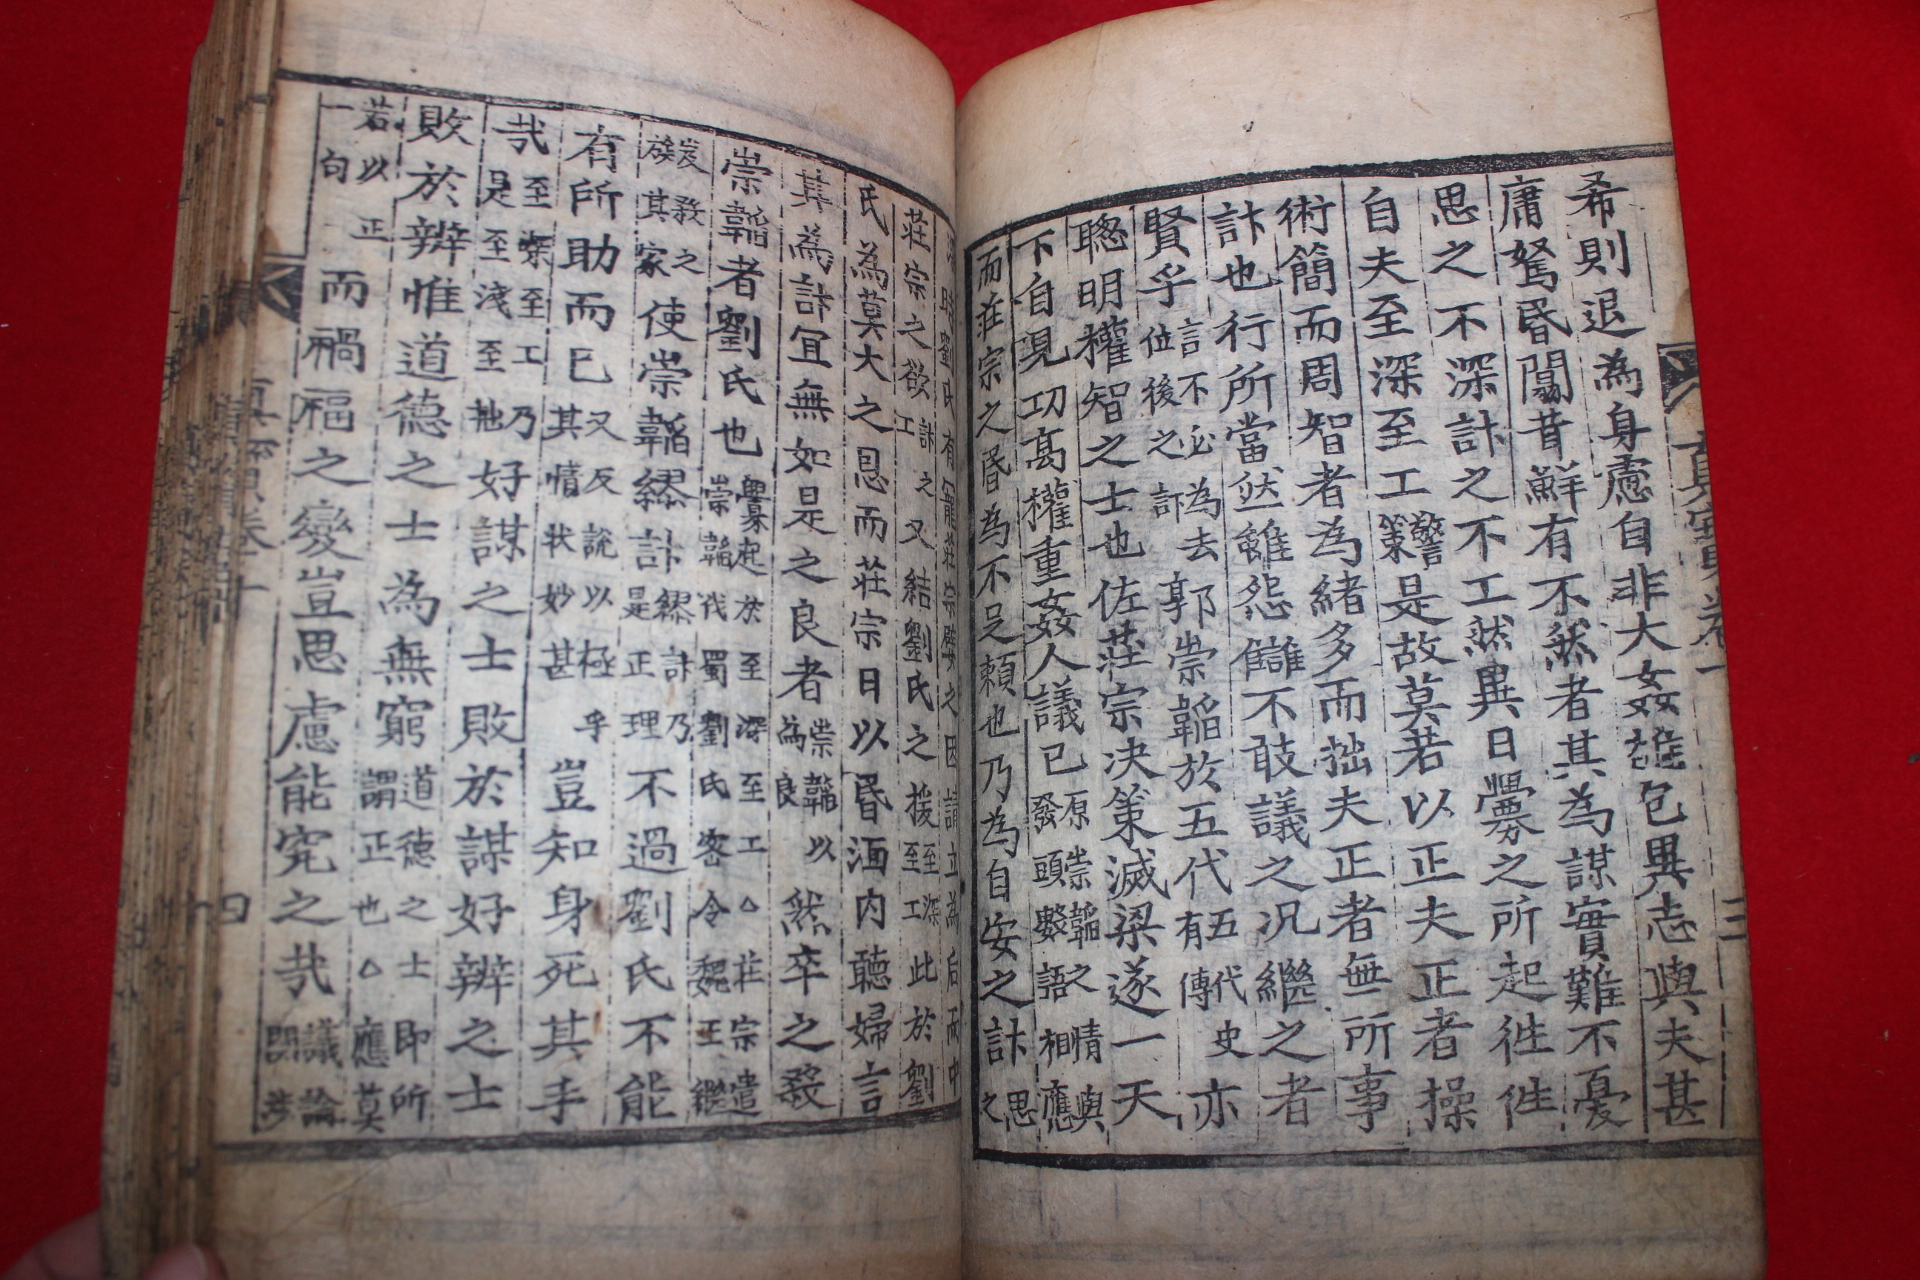 希則退為身慮自非大姦雄包異志與夫甚
庸駑昏闒昔鮮有不然者其為謀實難不憂
思之不深計之不工然異日釁之所起徃徃
自夫至深至工警策是故莫若以正夫正者操
術簡而周智者為緒多而拙夫正者無所事
計也行所當然雖怨讎不敢議之况繼之者
賢乎言不必為去位後之計郭崇韜於五代五代史有傳亦
聰明權智之士也佐莊宗决策滅梁遂一天
下自現功高權重姦人議已原崇韜之情與發頭數語相應
而莊宗之昏為不足頼也乃為自安之計思之
時劉氏有寵莊宗嬖之因請立為后而中
莊宗之欲計之工又結劉氏之援至深至工此於劉
氏為莫大之恩而莊宗日以昏湎內聽婦言
其為計冝無如是之良者崇韜以為良然卒之殺
崇韜者劉氏也釁起於至深至工崇韜伐蜀劉氏密令魏王繼
岌殺之族其家使崇韜繆計繆計乃是正理不過劉氏不能
有所助而已又反說以極其情狀妙甚乎豈知身死其手
哉至深至工乃是至淺至拙好謀之士敗於謀好辨之士
敗於辨惟道德之士為無窮道德之士即所謂正也應莫
若以正一句而禍福之變豈思慮能究之哉議論
真寶卷十
四
真寶卷十
三